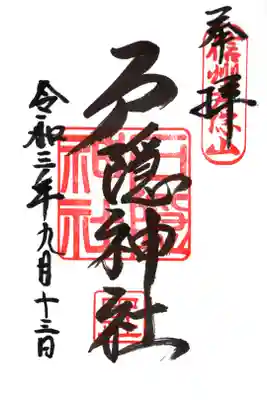 奉拝
信州戸隠山
戸隠神社
令和三年九月十三日